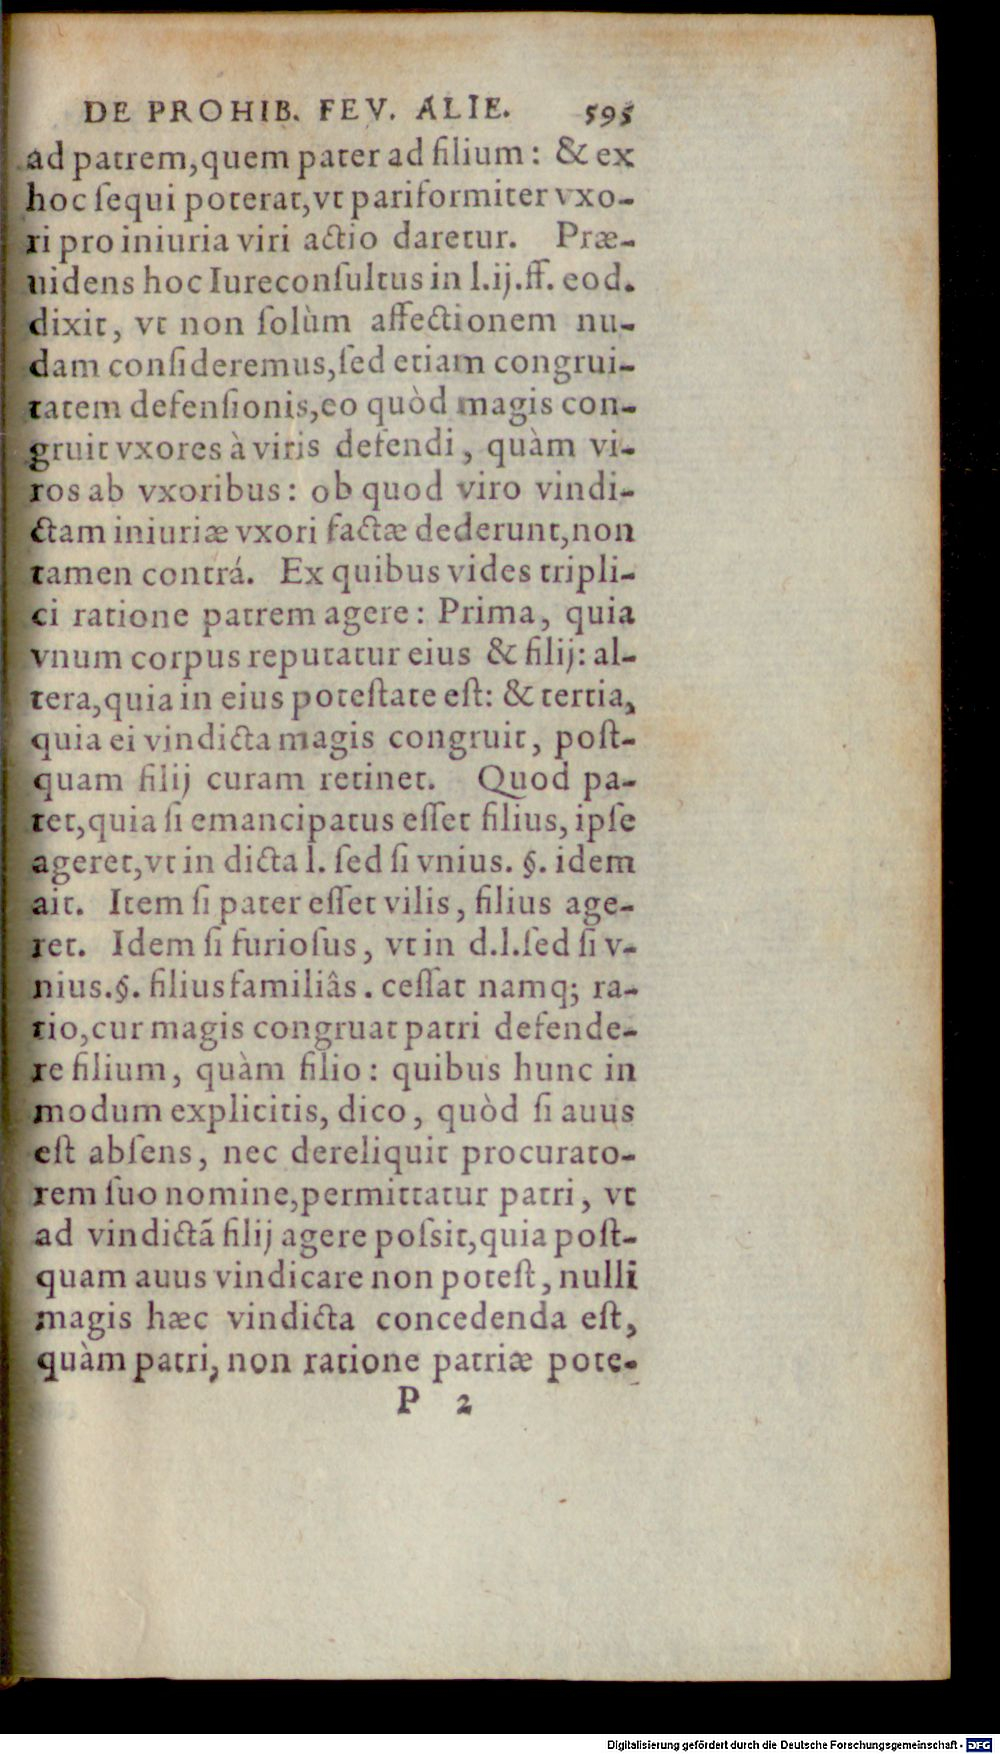 DE PROHIB. FEV. ALIE. 595
ad patrem,quem pater ad filium: & ex
hoc ſequi poterat,vt pariformiter vxo-
ri pro iniuria viri actio daretur. Præ-
uidens hoc Iureconſultus in l.ij.ff. eod.
dixit, vt non ſolùm affectionem nu-
dam conſideremus,ſed etiam congrui-
tatem defenſionis,eo quòd magis con-
gruit vxores à viris defendi, quàm vi-
ros ab vxoribus: ob quod viro vindi-
ctam iniuriæ vxori factæ dederunt,non
tamen contrá. Ex quibus vides tripli-
ci ratione patrem agere: Prima, quia
vnum corpus reputatur eius & filij: al-
tera,quia in eius poteſtate eſt: & tertia,
quia ei vindicta magis congruit, poſt-
quam filij curam retinet. Quod pa-
tet,quia ſi emancipatus eſſet filius, ipſe
ageret,vt in dicta l. ſed ſi vnius. §. idem
ait. Item ſi pater eſſet vilis, filius age-
ret. Idem ſi furioſus, vt in d.l.ſed ſi v-
nius.§. filiusfamiliâs. ceſſat namq; ra-
tio,cur magis congruat patri defende-
re filium, quàm filio: quibus hunc in
modum explicitis, dico, quòd ſi auus
eſt abſens, nec dereliquit procurato-
rem ſuo nomine,permittatur patri, vt
ad vindictã filij agere poſsit,quia poſt-
quam auus vindicare non poteſt, nulli
magis hæc vindicta concedenda eſt,
quàm patri, non ratione patriæ pote-
P 2
Digitalisierung gefördert durch die Deutsche Forschungsgemeinschaft - DFG